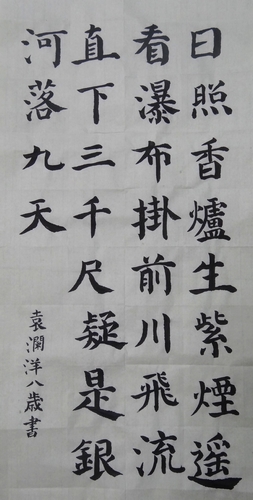 日照香爐生紫煙遥
看瀑布掛前川飛流
直下三千尺疑是銀
河落九天
袁澜洋八歲書